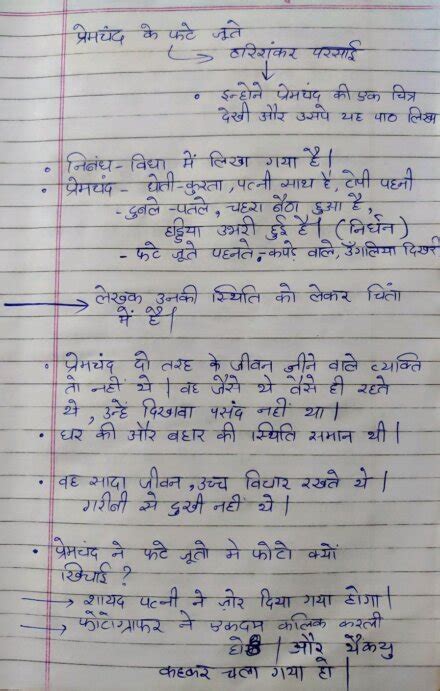 प्रेमचंद के फटे जूते
हरिशंकर परसाई
• इन्होने प्रेमचंद की एक चित्र
देखी और उसपे यह पाठ लिखा
• निबंध - विधा में लिखा गया है |
• प्रेमचंद - धोती-कुरता, पत्नी साथ है, टोपी पहनी
- दुबले-पतले, चहरा बैठा हुआ है,
हड्डिया उभरी हुई है | (निर्धन)
- फटे जूते पहनते - कपडे वाले, उँगलिया दिखई
लेखक उनकी स्थिति को लेकर चिंता
में है |
• प्रेमचंद दो तरह के जीवन जीने वाले व्यक्ति
तो नहीं थे | वह जैसे थे वैसे ही रहते
थे, उन्हें दिखावा पसंद नहीं था |
• घर की और बहार की स्थिति समान थी |
• वह सादा जीवन, उच्च विचार रखते थे |
गरीबी से दुखी नहीं थे |
• प्रेमचंद ने फटे जूतो मे फोटो क्यों
खिचाई ?
→ शायद पत्नी ने ज़ोर दिया गया होगा |
→ फोटोग्राफर ने एकदम कलिक करली
हो | और थैंकयु
कहकर चला गया हो |